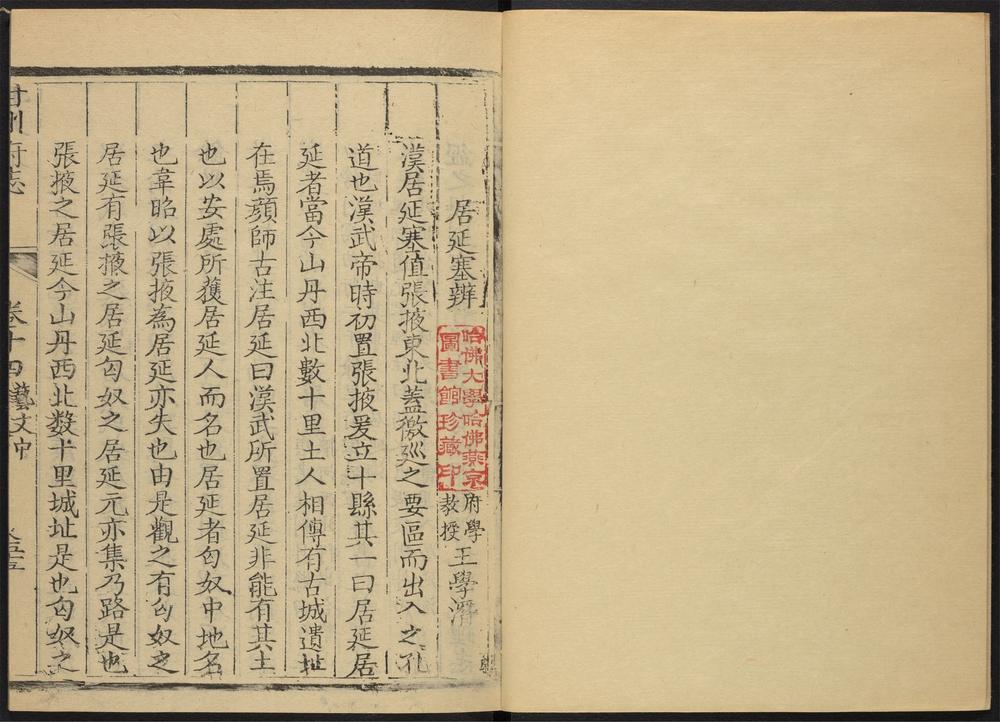 居延塞辨
哈佛大學哈佛燕京
圖書館珍藏印
府學
教授
王學潛
漢居延塞值張掖東北蓋徼廵之要區而出入之孔
道也漢武帝時初置張掖爰立十縣其一曰居延居
延者當今山丹西北數十里土人相傳有古城遺址
在焉顏師古注居延曰漢武所置居延非能有其土
也以安處所獲居延人而名也居延者匈奴中地名
也韋昭以張掖為居延亦失也由是觀之有匈奴之
居延有張掖之居延匈奴之居延元亦集乃路是也
張掖之居延今山丹西北數十里城址是也匈奴之
甘州府志
卷十四藝文中